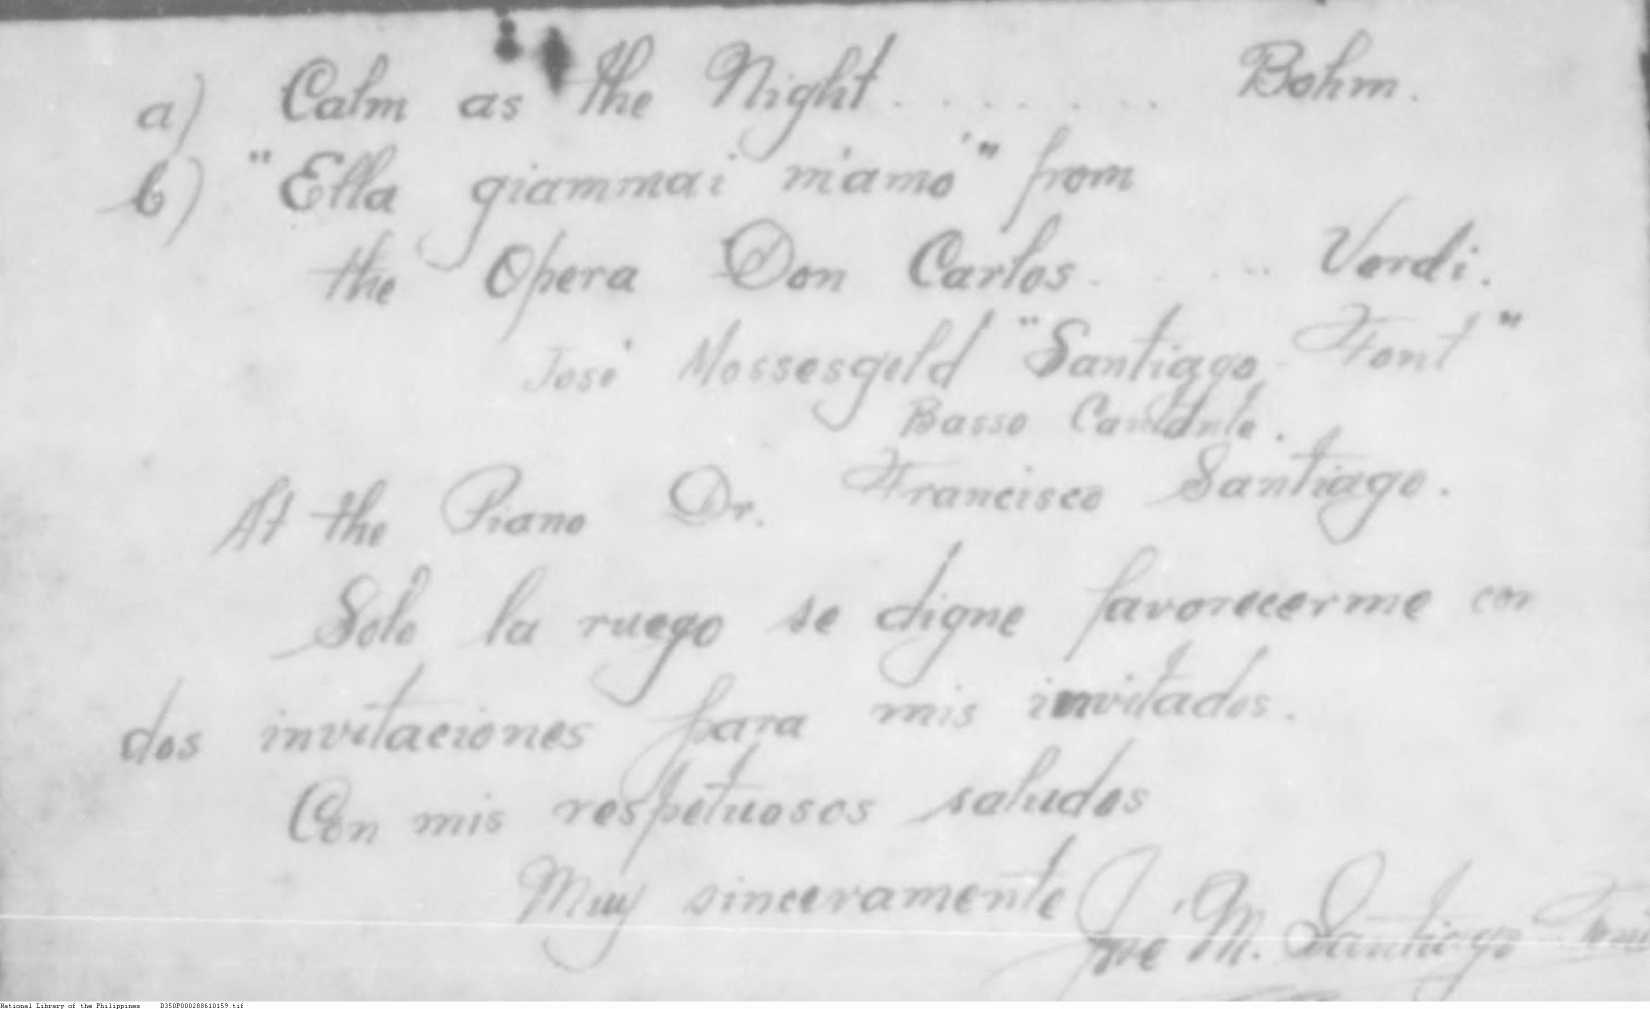 a) Calm as the Night . . . . . . . Bohm.
b) "Ella giammai m'amó" from
the Opera Don Carlos . . . . . Verdi.
José Mossesgeld "Santiago-Font"
Basso Cantante.
At the Piano Dr. Francisco Santiago.
Solo la ruego se digne favorecerme con
dos invitaciones para mis invitados.
Con mis respetuosos saludos
Muy sinceramente
José M. Santiago Font
National Library of the Philippines D350P000288610159.tif